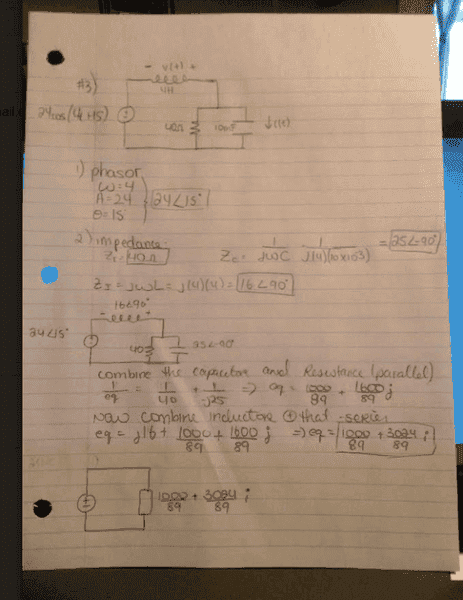 #3)
- v(t) +
4H
24cos(4t+15)
40Ω
10mF
↓i(t)
1) phasor
ω=4
A=24
θ=15
24∠15°
2) impedance
Zr=40Ω
Zc = 1/jωC 1/j(4)(10x10^-3) = 25∠-90°
ZI = jωL = j(4)(4) = 16∠90°
16∠90°
- +
24∠15°
40
25∠-90°
combine the capacitor and Resistance (parallel)
1/eq = 1/40 + 1/-j25 => eq = 1000/89 + 1600/89 j
Now combine inductor & that - series
eq = j16 + 1000/89 + 1600/89 j => eq = 1000/89 + 3024/89 i
1000/89 + 3024/89 i